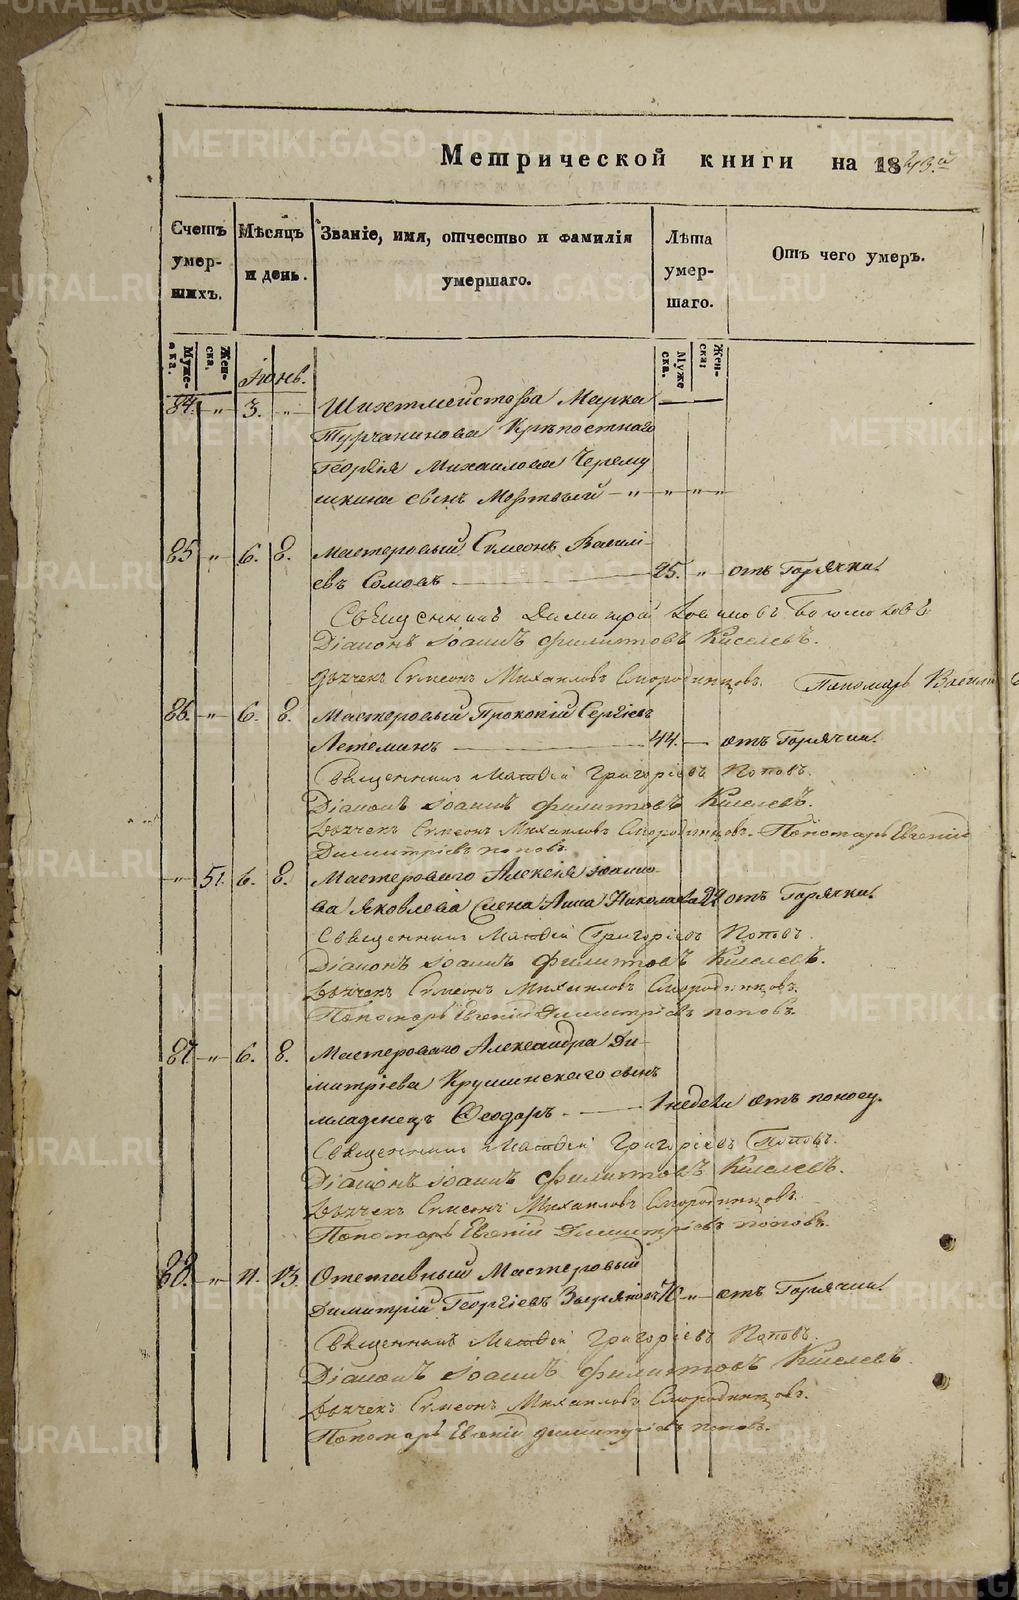 Метрической книги на 1843й
Счетъ умер-шихъ.
Мѣсяцъ и день.
Званіе, имя, отчество и фамилія умершаго.
Лѣта умер-шаго.
Отъ чего умеръ.
Муже-ска. Жен-ска. Муже ска. Жен-ска:
Іюнь.
84. „ 3. „ Шихтмейстора Марка
Турчанинова Крѣпостнаго
Георгія Михаилова Черему
шкина сынъ Мортвый — „ — „ — „ — „
85 „ 6. 8. Мастеровый Сѵмеонъ Васили-
евъ Сомовъ — 25. „ отъ Горячки.
Священникъ Димитрій
Діаконъ Іоаннъ Филиповъ Киселевъ.
Дьячекъ Сѵмеонъ Михаиловъ Смородинцовъ. Пономарь
86. „ 6. 8. Мастеровый Прокопій Сергіевъ
Летеминъ — 44. — отъ Горячки.
Священникъ Матфей Григоріевъ Поповъ.
Діаконъ Іоаннъ Филиповъ Киселевъ.
Дьячекъ Сѵмеонъ Михаиловъ Смородинцовъ. Пономарь Евгеній
Димитріевъ Поповъ.
„ 51. 6. 8. Мастероваго Алексія Іоанно-
ва Яковлева жена Анна Николаева 24 отъ Горячки.
Священникъ Матфей Григоріевъ Поповъ.
Діаконъ Іоаннъ Филиповъ Киселевъ.
Дьячекъ Сѵмеонъ Михаиловъ Смородинцовъ.
Пономарь Евгеній Димитріевъ Поповъ.
87. „ 6. 8. Мастероваго Александра Ди-
митріева Крушинскаго сынъ
младенецъ Ѳеодоръ — 1 недели отъ поносу.
Священникъ Матфей Григоріевъ Поповъ.
Діаконъ Іоаннъ Филиповъ Киселевъ.
Дьячекъ Сѵмеонъ Михаиловъ Смородинцовъ
Пономарь Евгеній Димитріевъ Поповъ.
88. „ 11. 13. Отставный Мастеровый
Димитрій Георгіевъ „ отъ Горячки.
Священникъ Матфей Григоріевъ Поповъ.
Діаконъ Іоаннъ Филиповъ Киселевъ.
Дьячекъ Сѵмеонъ Михаиловъ Смородинцовъ.
Пономарь Евгеній Димитріевъ Поповъ.
METRIKI.GASO-URAL.RU